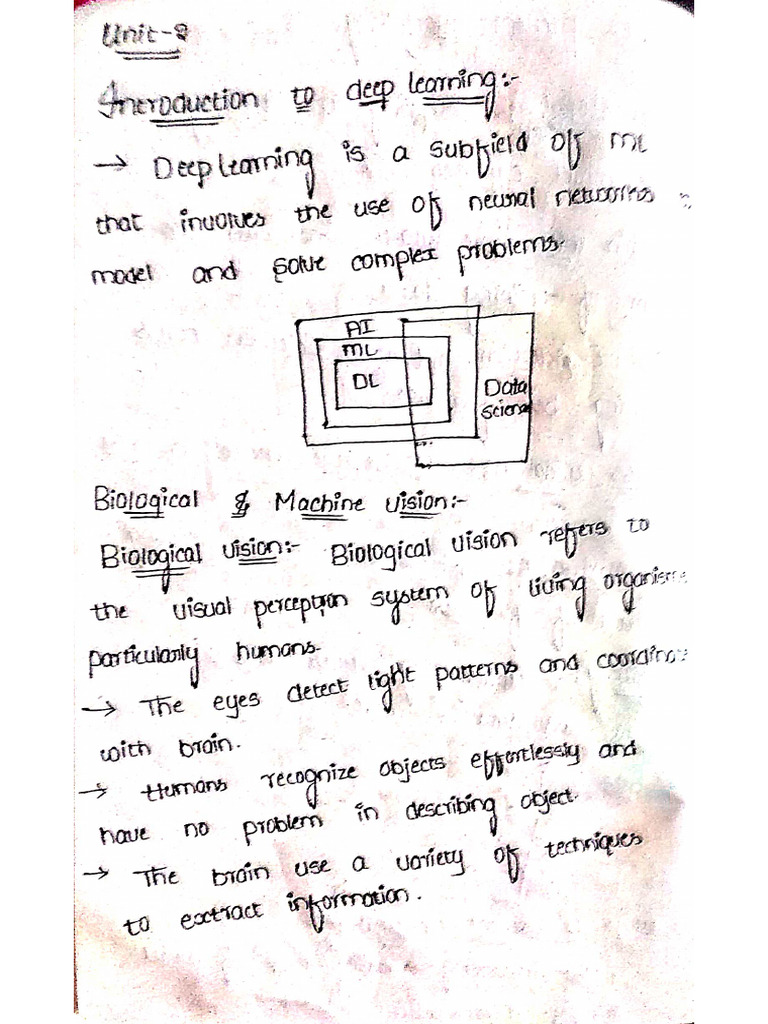 Unit-2
Introduction to deep learning:-
→ Deep learning is a subfield of ML
that involves the use of neural networks
model and solve complex problems.
AI
ML
DL
Data
Scien
Biological & Machine vision:-
Biological vision:- Biological vision refers to
the visual perception system of living organism
particularly humans.
→ The eyes detect light patterns and coordina
with brain.
→ Humans recognize objects effortlessly and
have no problem in describing object.
→ The brain use a variety of techniques
to exctract information.